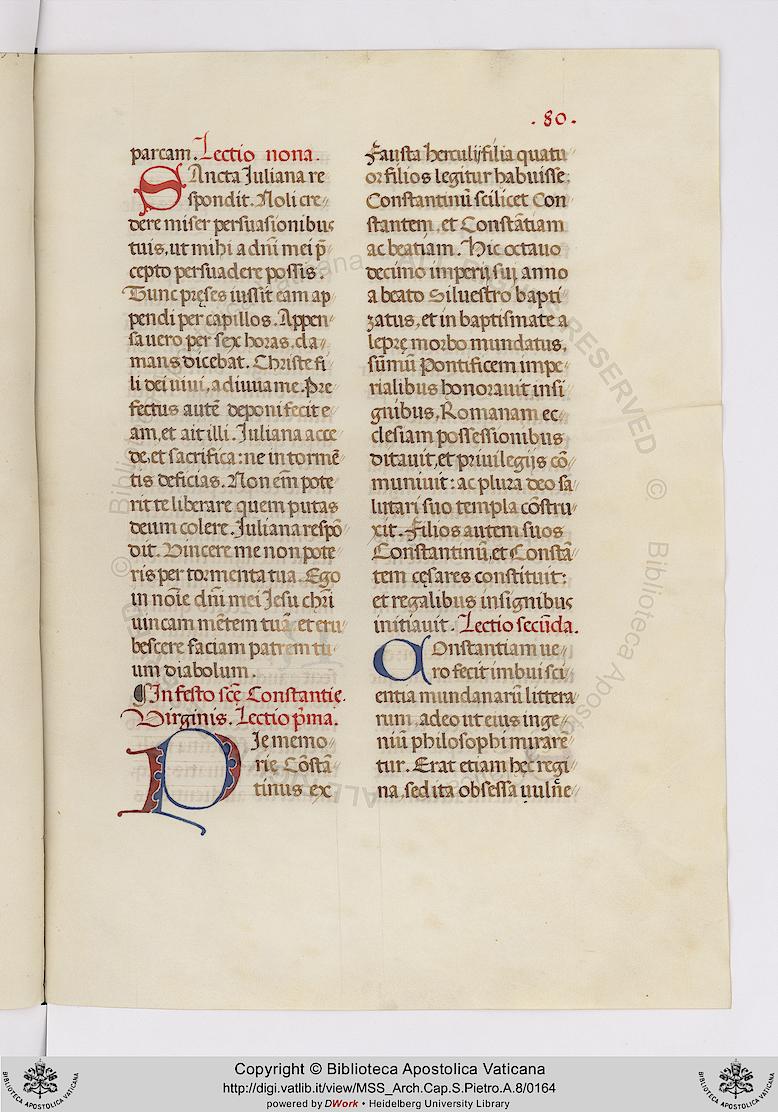 . 80 .
parcam. Lectio nona.
SAncta Juliana re
spondit. Noli cre⸗
dere miser persuasionibus
tuis, ut mihi a dñi mei p̃
cepto persuadere possis.
Tunc pręses iussit eam ap
pendi per capillos. Appen⸗
sa uero per sex horas, cla⸗
mans dicebat. Christe fi⸗
li dei uiui, adiuua me. Pre
fectus autẽ deponi fecit e⸗
am, et ait illi. Juliana acce
de, et sacrifica: ne in tormẽ⸗
tis deficias. Non eĩn pote⸗
rit te liberare quem putas
deum colere. Juliana respõ⸗
dit. Vincere me non pote⸗
ris per tormenta tua. Ego
in noĩe dñi mei Jesu chr̃i
uincam mẽtem tuã, et eru⸗
bescere faciam patrem tu⸗
um diabolum.
¶ In festo scẽ Constantie.
Virginis. Lectio p̃ma.
PIe memo⸗
rie Cõstã
tinus ex
Fausta herculij filia quatu⸗
or filios legitur habuisse:
Constantinũ scilicet Con⸗
stantem, et Constãtiam
ac beatiam. Hic octauo
decimo imperij sui anno
a beato Siluestro bapti
zatus, et in baptismate a
leprę morbo mundatus,
sũmũ Pontificem impe⸗
rialibus honorauit insi⸗
gnibus, Romanam ec⸗
clesiam possessionibus
ditauit, et priuilegijs cõ⸗
muniuit: ac plura deo sa⸗
lutari suo templa cõstru⸗
xit. Filios autem suos
Constantinũ, et Constã⸗
tem cęsares constituit:
et regalibus insignibus
initiauit. Lectio secũda.
COnstantiam ue⸗
ro fecit imbui sci⸗
entia mundanarũ littera⸗
rum, adeo ut eius inge⸗
niũ philosophi mirare⸗
tur. Erat etiam hęc regi⸗
na, sed ita obsessa uulñe⸗
Copyright © Biblioteca Apostolica Vaticana
http://digi.vatlib.it/view/MSS_Arch.Cap.S.Pietro.A.8/0164
powered by DWork • Heidelberg University Library
BIBLIOTECA APOSTOLICA VATICANA
BIBLIOTECA APOSTOLICA VATICANA